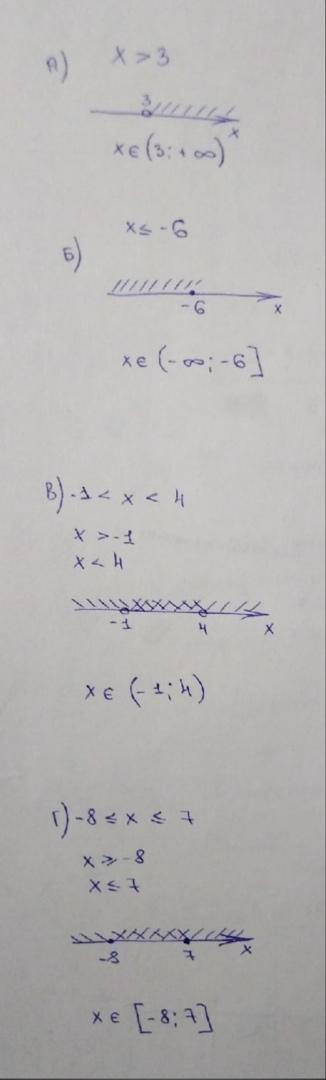 А) x > 3
3
x
x ∈ (3; + ∞)
Б) x ≤ -6
-6 x
x ∈ (- ∞; -6]
В) -1 < x < 4
x > -1
x < 4
-1 4 x
x ∈ (-1; 4)
Г) -8 ≤ x ≤ 7
x ≥ -8
x ≤ 7
-8 7 x
x ∈ [-8; 7]